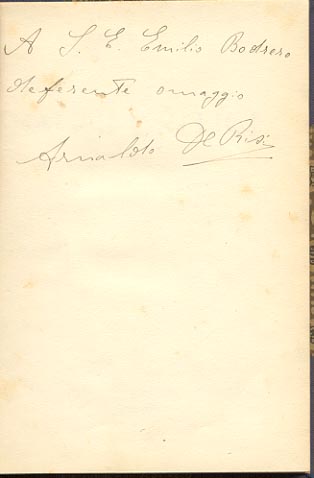 A S. E. Emilio Bodrero
deferente omaggio
Arnaldo De Risi